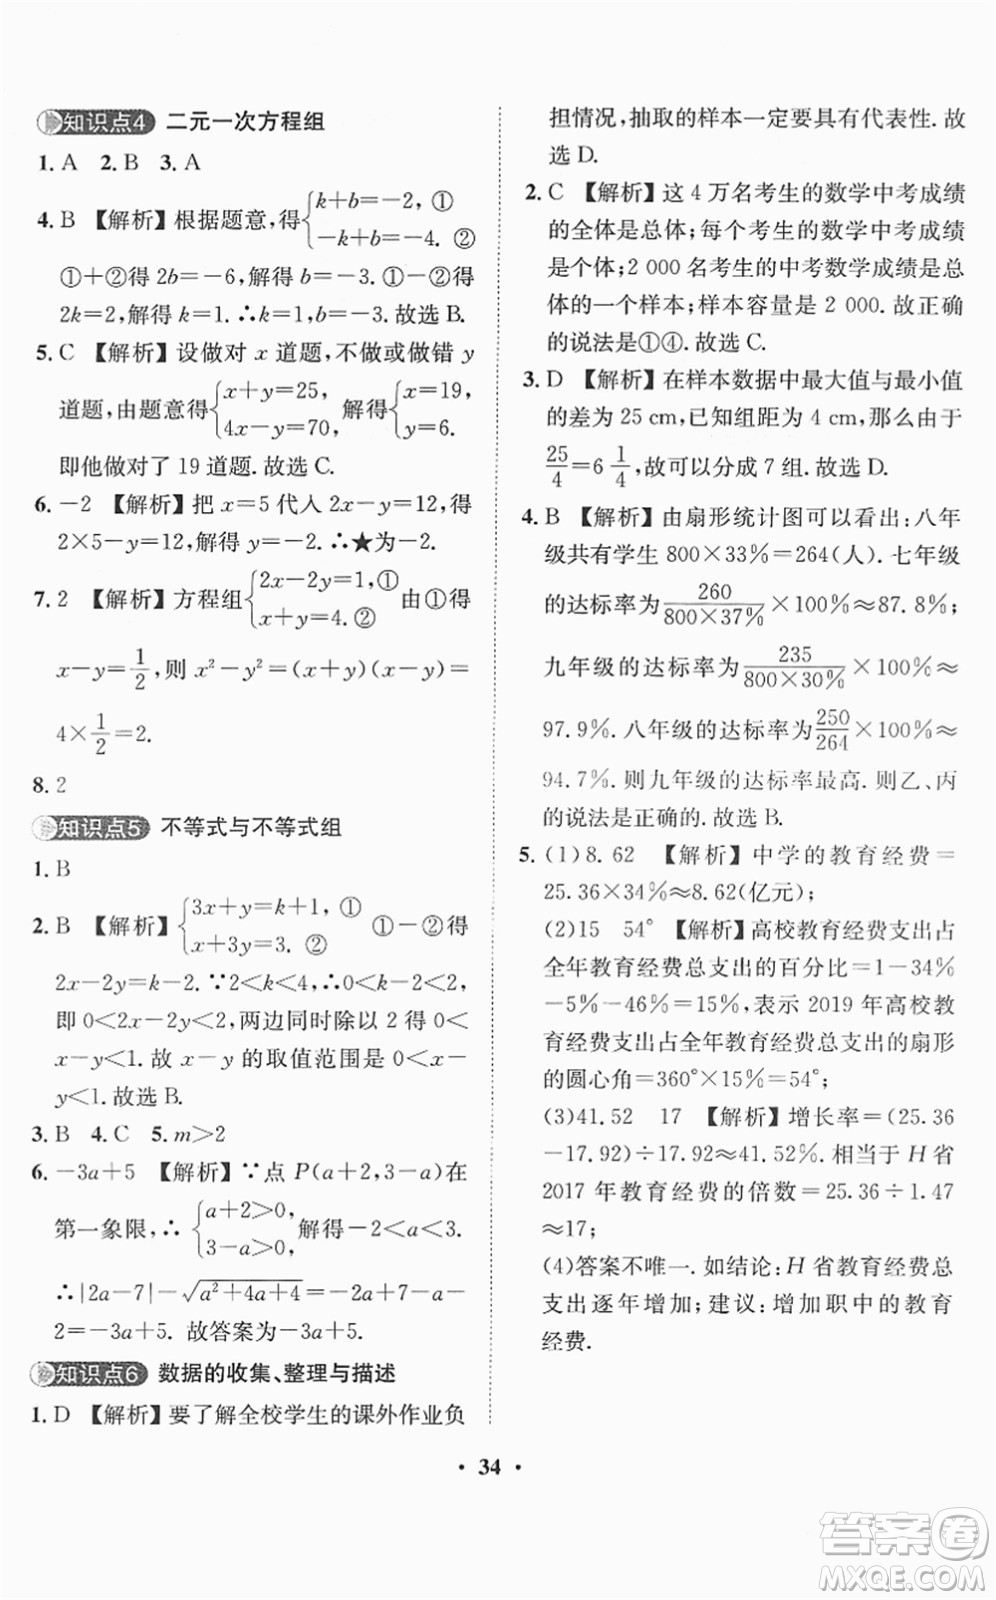 知识点4 二元一次方程组
1. A 2. B 3. A
4. B 【解析】根据题意,得{k+b=-2, ① -k+b=-4. ②
①+②得 2b=-6,解得 b=-3. ①-②得
2k=2,解得 k=1. ∴k=1,b=-3.故选 B.
5. C 【解析】设做对 x 道题,不做或做错 y
道题,由题意得{x+y=25, 4x-y=70, 解得{x=19, y=6.
即他做对了 19 道题.故选 C.
6. -2 【解析】把 x=5 代人 2x-y=12,得
2×5-y=12,解得 y=-2. ∴★为-2.
7. 2 【解析】方程组{2x-2y=1,① x+y=4. ② 由①得
x-y=1/2,则 x²-y²=(x+y)(x-y)=
4×1/2=2.
8. 2
知识点5 不等式与不等式组
1. B
2. B 【解析】{3x+y=k+1, ① x+3y=3. ② ①-②得
2x-2y=k-2. ∵2<k<4,∴0<k-2<2,
即 0<2x-2y<2,两边同时除以 2 得 0<
x-y<1. 故 x-y 的取值范围是 0<x-
y<1.故选 B.
3. B 4. C 5. m>2
6. -3a+5 【解析】∵点 P(a+2,3-a)在
第一象限,∴{a+2>0, 3-a>0, 解得-2<a<3.
∴|2a-7|-√(a²+4a+4)=7-2a-a-
2=-3a+5.故答案为-3a+5.
知识点6 数据的收集、整理与描述
1. D 【解析】要了解全校学生的课外作业负
担情况,抽取的样本一定要具有代表性.故
选 D.
2. C 【解析】这 4 万名考生的数学中考成绩
的全体是总体;每个考生的数学中考成绩
是个体;2 000 名考生的中考数学成绩是总
体的一个样本;样本容量是 2 000.故正确
的说法是①④.故选 C.
3. D 【解析】在样本数据中最大值与最小值
的差为 25 cm,已知组距为 4 cm,那么由于
25/4=6 1/4,故可以分成 7 组.故选 D.
4. B 【解析】由扇形统计图可以看出:八年
级共有学生 800×33%=264(人). 七年级
的达标率为260/(800×37%)×100%≈87.8%;
九年级的达标率为235/(800×30%)×100%≈
97.9%. 八年级的达标率为250/264×100%≈
94.7%. 则九年级的达标率最高. 则乙、丙
的说法是正确的.故选 B.
5. (1)8. 62 【解析】中学的教育经费=
25.36×34%≈8.62(亿元);
(2)15 54° 【解析】高校教育经费支出占
全年教育经费总支出的百分比=1-34%
-5%-46%=15%,表示 2019 年高校教
育经费支出占全年教育经费总支出的扇形
的圆心角=360°×15%=54°;
(3)41. 52 17 【解析】增长率=(25.36
-17.92)÷17.92≈41.52%,相当于 H 省
2017 年教育经费的倍数=25.36÷1.47
≈17;
(4)答案不唯一. 如结论:H 省教育经费总
支出逐年增加;建议:增加职中的教育
经费.
· 34 ·
答案卷
MXQE.COM